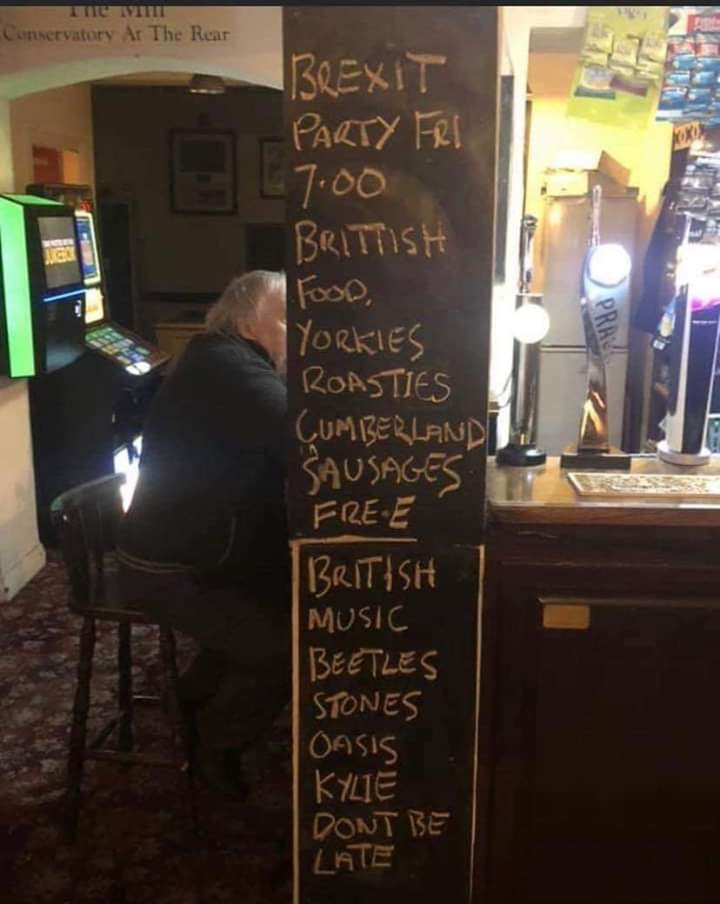 The Mill
Conservatory At The Rear
BREXIT
PARTY FRI
7.00
BRITTISH
FOOD,
YORKIES
ROASTIES
CUMBERLAND
SAUSAGES
FRE-E
BRITISH
MUSIC
BEETLES
STONES
OASIS
KYLIE
DONT BE
LATE
JUKEBOX